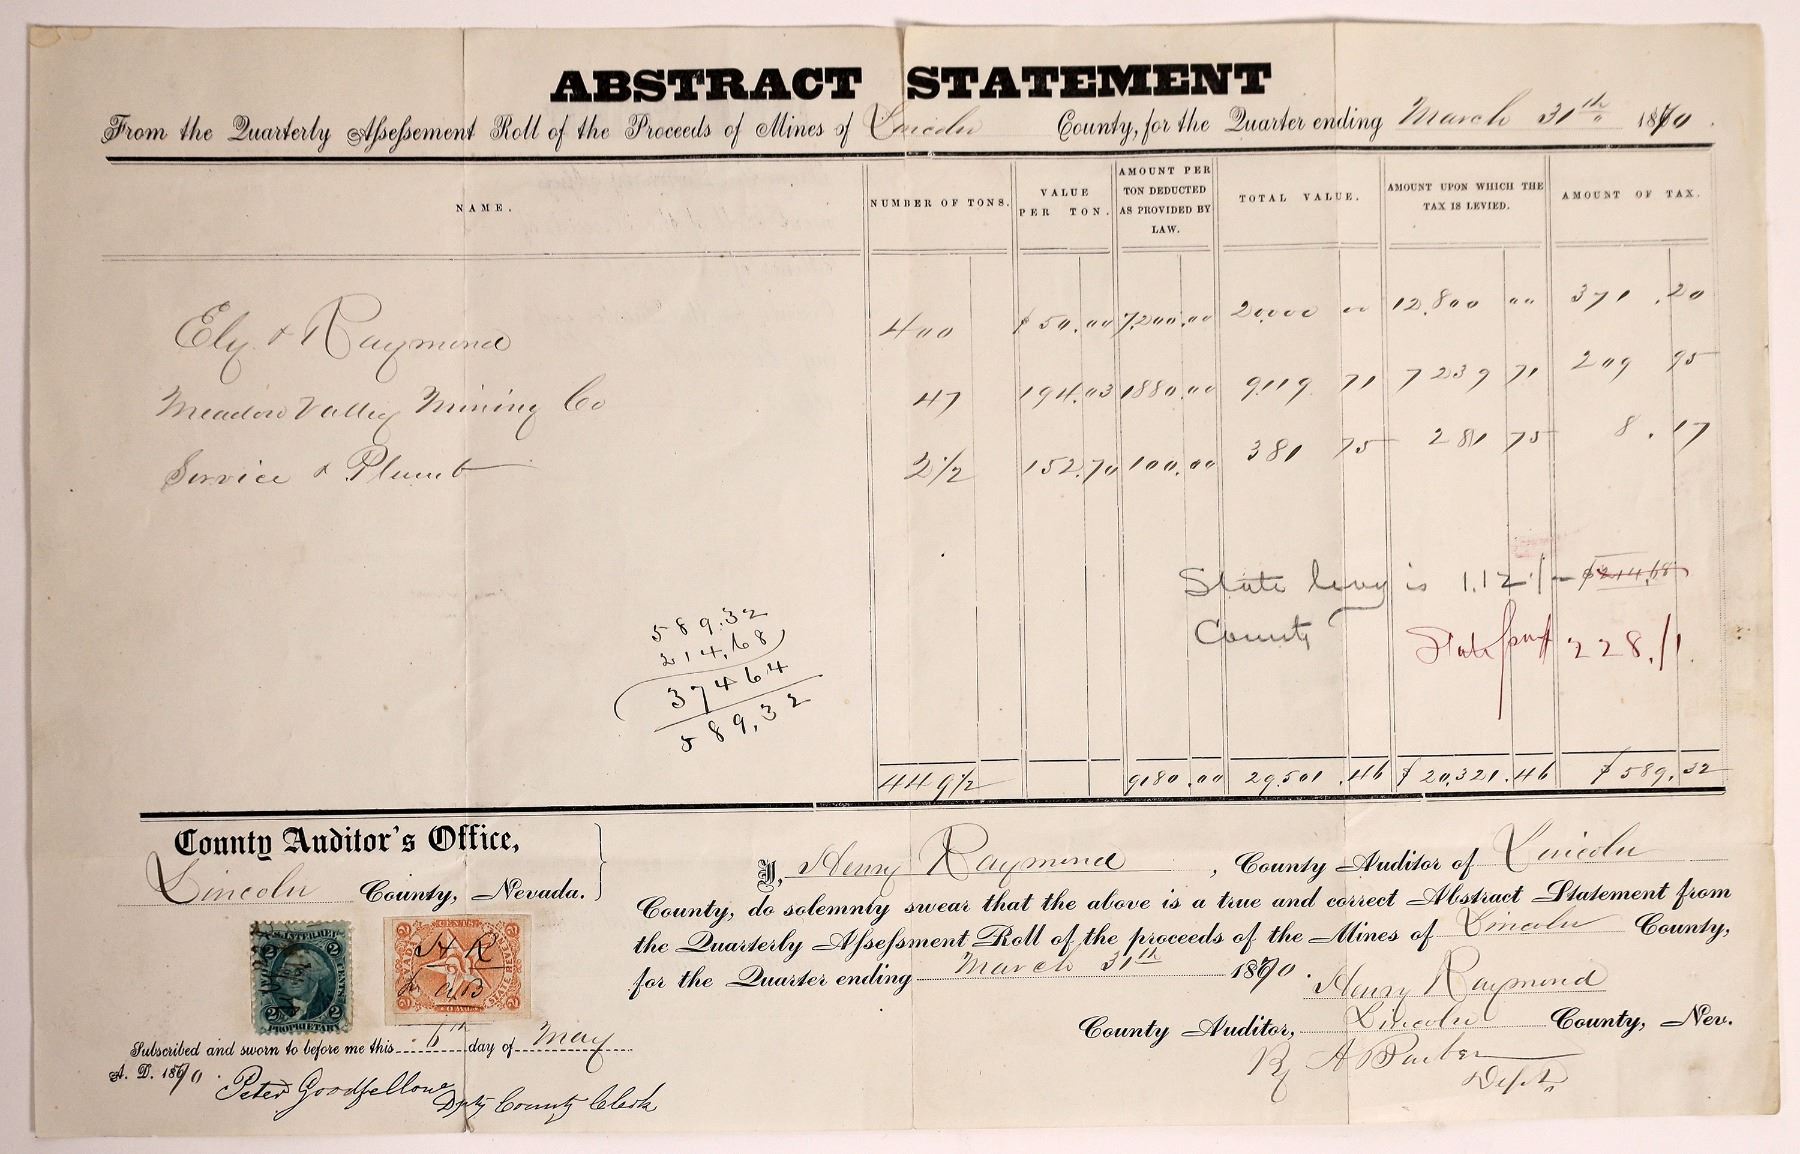 ABSTRACT STATEMENT
From the Quarterly Assessment Roll of the Proceeds of Mines of Lincoln County, for the Quarter ending March 31th 1870.
NAME. NUMBER OF TONS. VALUE PER TON. AMOUNT PER TON DEDUCTED AS PROVIDED BY LAW. TOTAL VALUE. AMOUNT UPON WHICH THE TAX IS LEVIED. AMOUNT OF TAX.
Ely & Raymond 400 $50.00 7,200.00 20,000 00 12,800 00 371.20
Meadow Valley Mining Co 47 194.03 1880.00 9119 71 7239 71 209 95
Service & Plumb 2 1/2 152.70 100.00 381 75 281 75 8.17
State levy is 1.12 $214.68
County State 228.11
589.32
214.68
374 64
589,32
449 1/2 9180.00 29,501.46 $20,321.46 $589.32
County Auditor's Office,
Lincoln County, Nevada.
I, Henry Raymond, County Auditor of Lincoln
County, do solemnly swear that the above is a true and correct Abstract Statement from
the Quarterly Assessment Roll of the proceeds of the Mines of Lincoln County,
for the Quarter ending March 31th 1870.
Henry Raymond
County Auditor, Lincoln County, Nev.
By A Barber
Dept.
U.S. INTER. REV.
2 2
CENTS
2 2
PROPRIETARY
NEVADA
H R
by AB
STATE REVENUE
Subscribed and sworn to before me this 6th day of May
A. D. 1870.
Peter Goodfellow
Dpty County Clerk